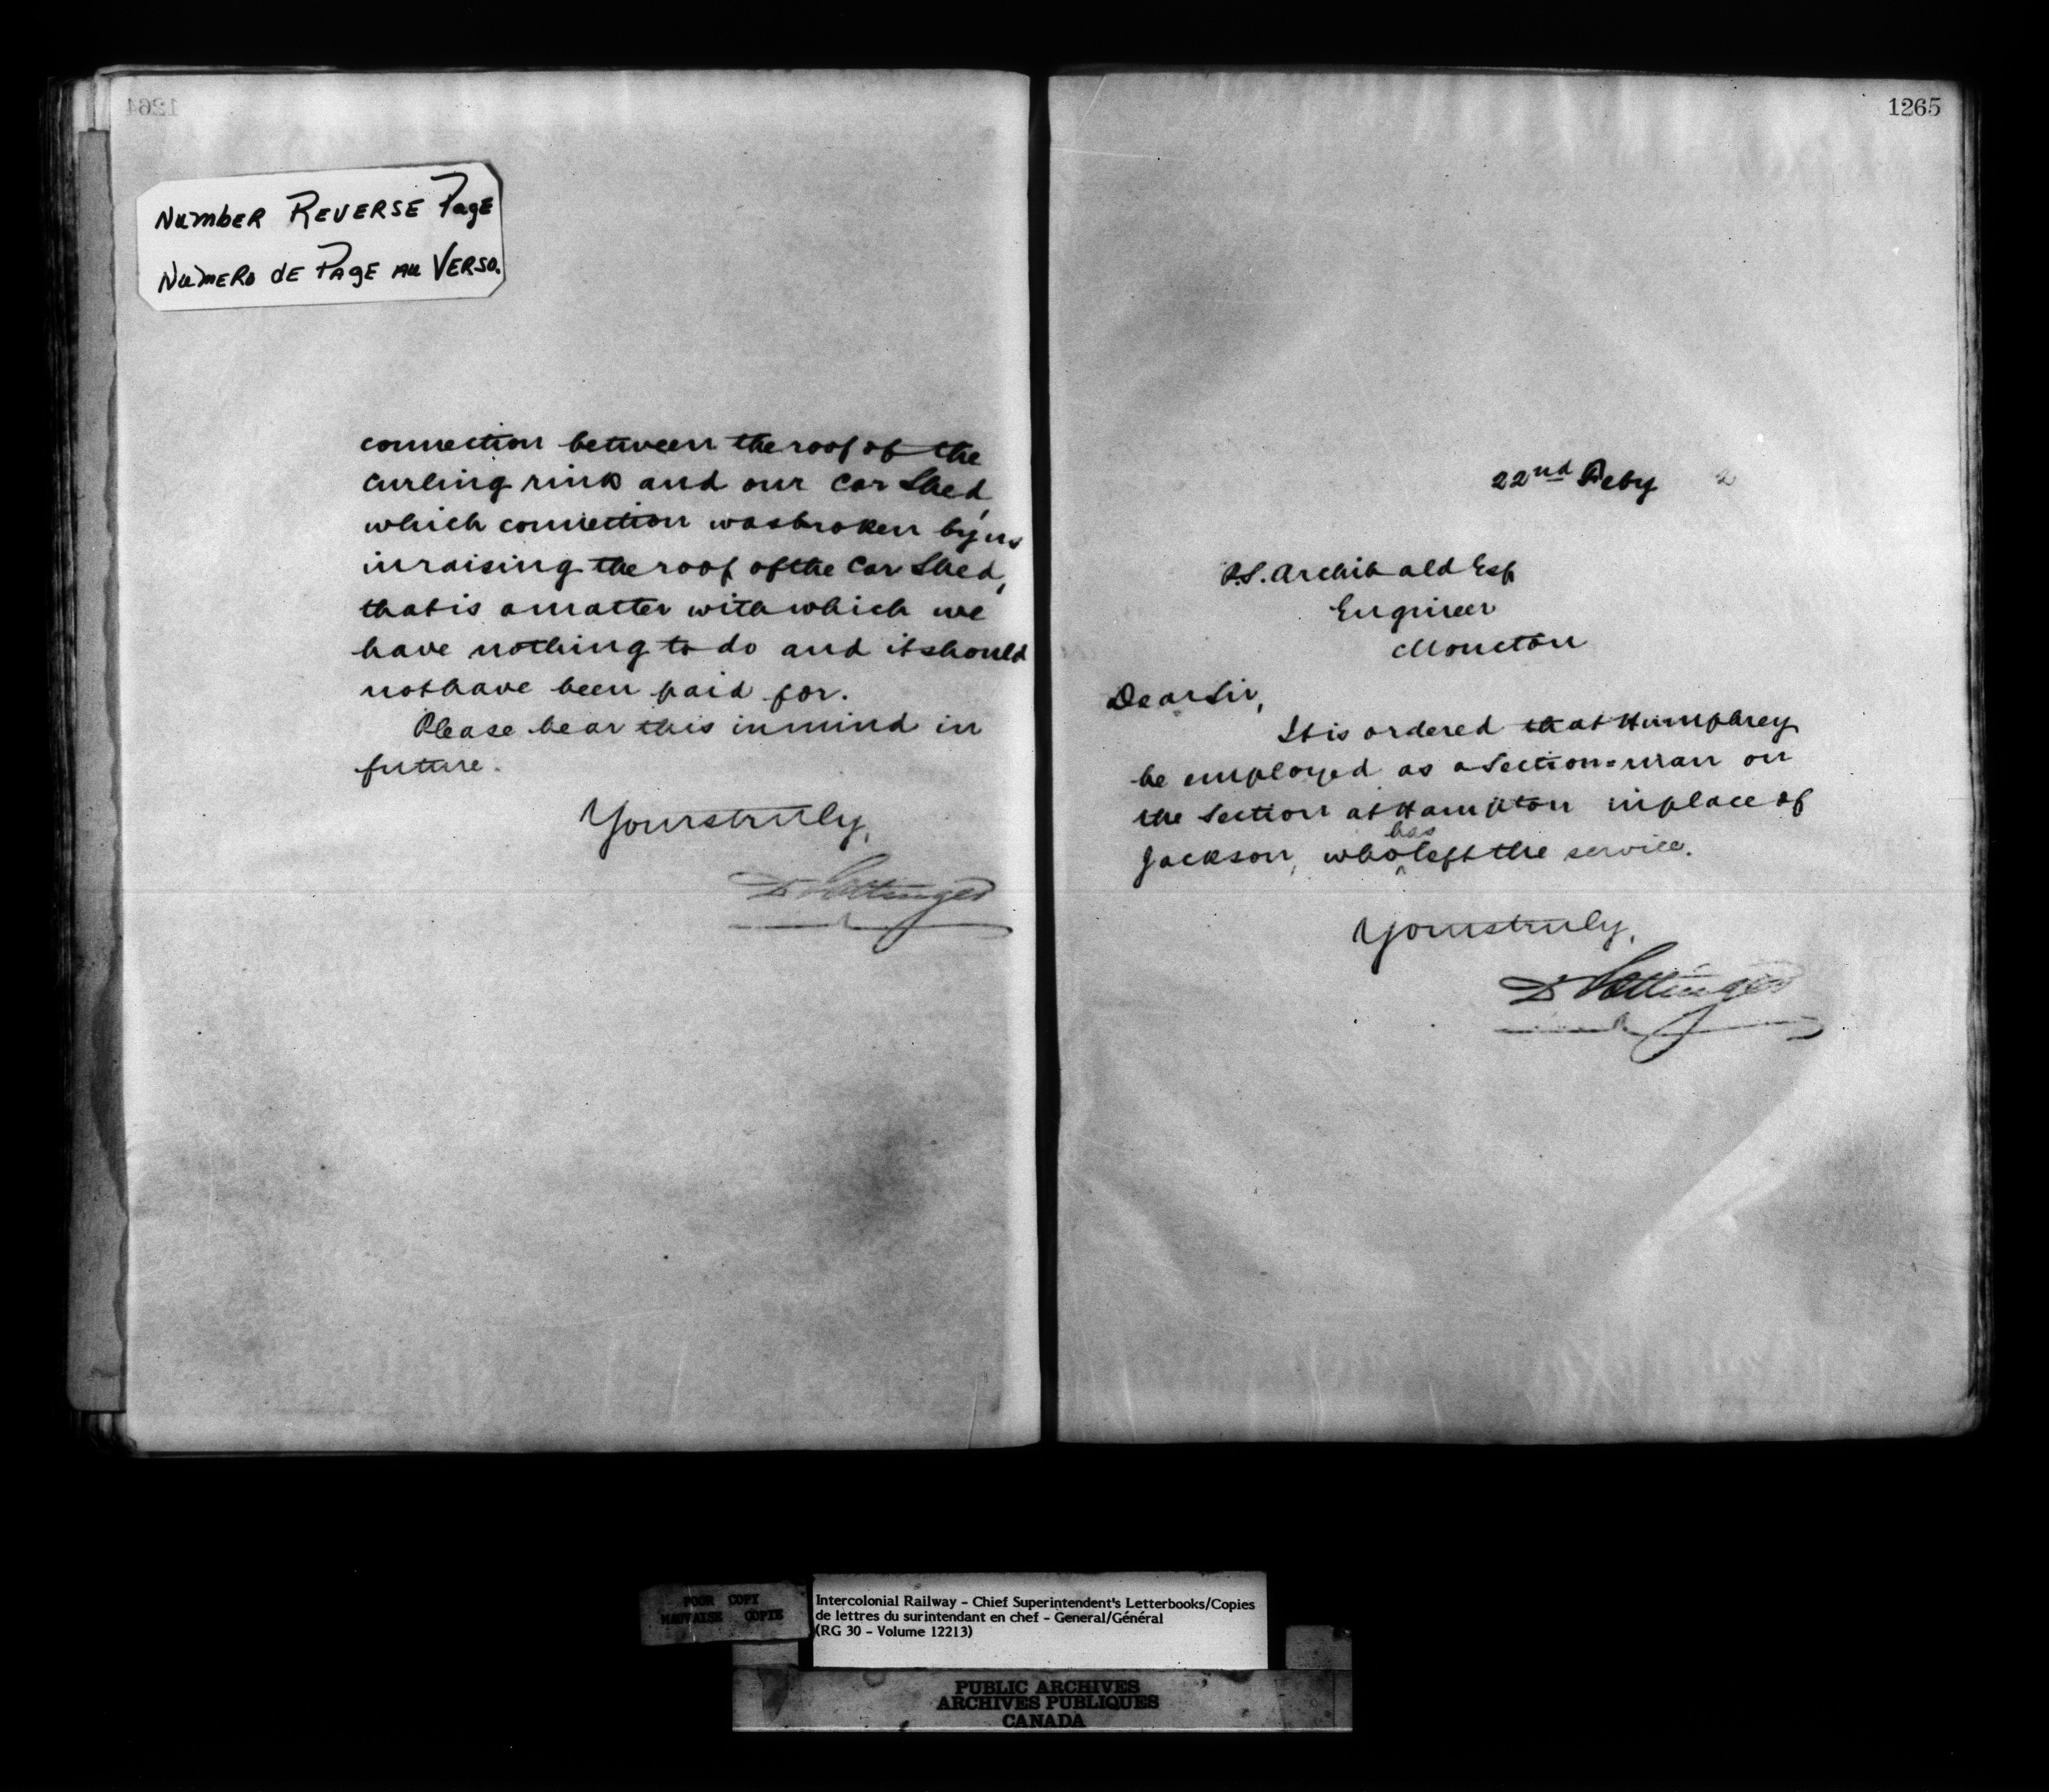 1264
NUMBER REVERSE PAGE
NUMERO DE PAGE AU VERSO.
connection between the roof of the
Curling rink and our Car Shed,
which connection was broken by us
in raising the roof of the Car Shed,
that is a matter with which we
have nothing to do and it should
not have been paid for.
Please bear this in mind in
future.
Yours truly,
D Pottinger
1265
22nd Feby 2
P.S. Archibald Esq
Engineer
Moncton
Dear Sir,
It is ordered that Humphrey
be employed as a Section-man on
the Section at Hampton in place of
Jackson, who has left the service.
Yours truly,
D Pottinger
POOR COPY
MAUVAISE COPIE
Intercolonial Railway - Chief Superintendent's Letterbooks/Copies
de lettres du surintendant en chef - General/Général
(RG 30 - Volume 12213)
PUBLIC ARCHIVES
ARCHIVES PUBLIQUES
CANADA